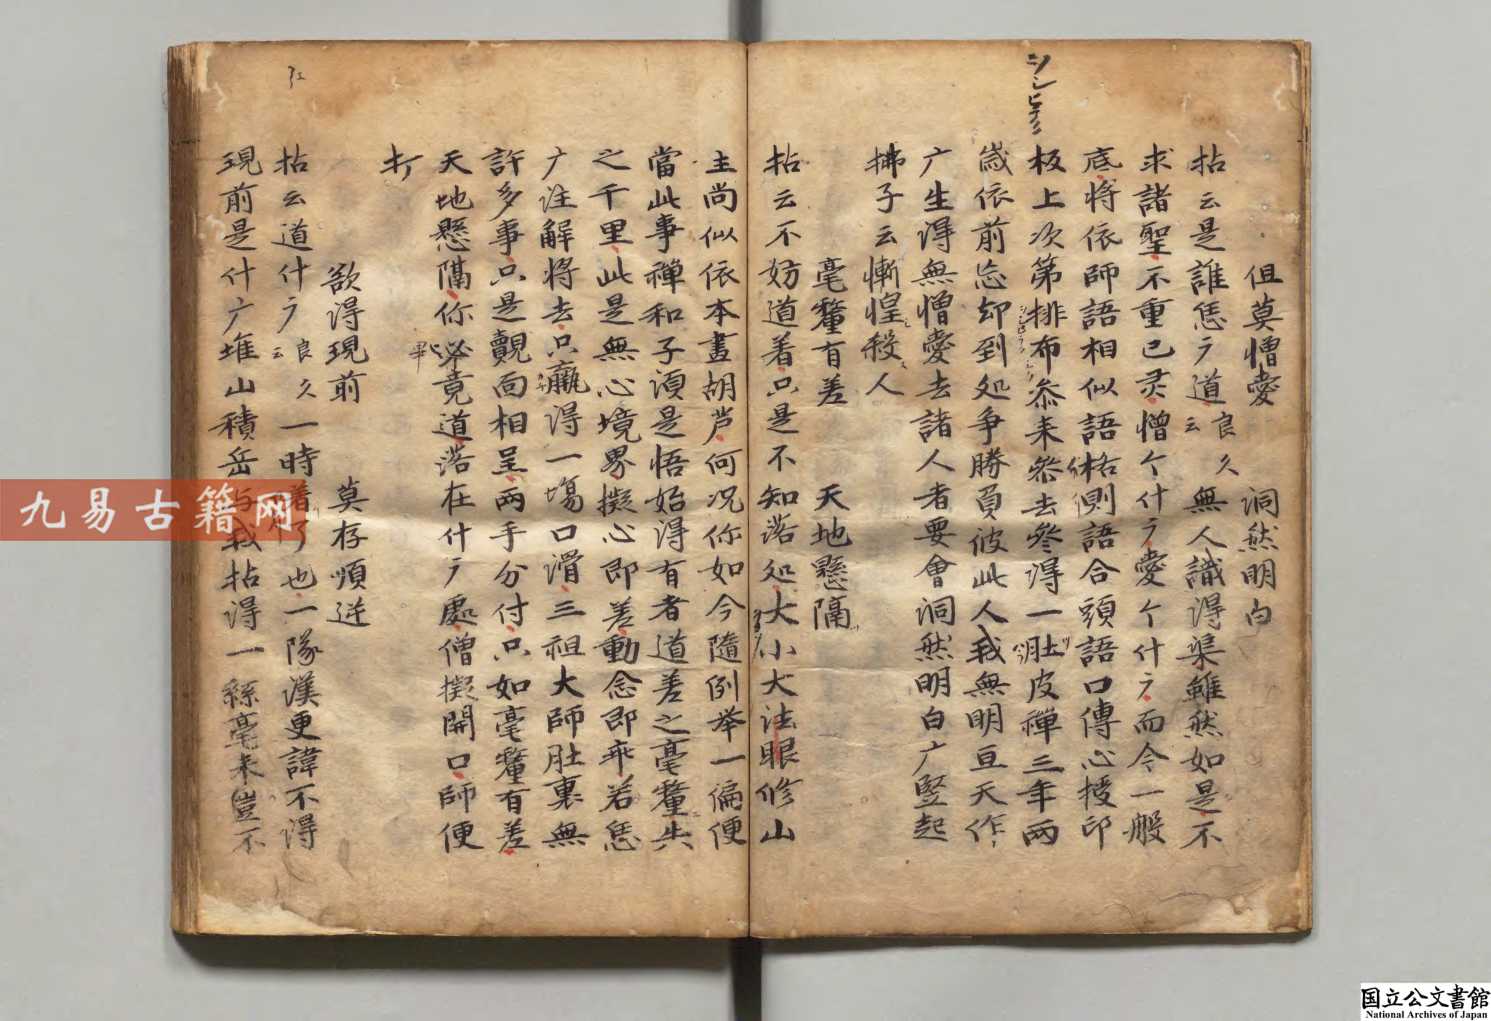 但莫憎愛　洞然明白
拈云是誰恁广道良久云無人識得渠雖然如是不
求諸聖不重已灵憎个什广愛个什广而今一般
底将依師語相似語格則語合頭語口傳心授印
板上次第排布叅来叅去叅得一肚皮禪三年两
歳依前忘却到処争勝負彼此人我無明亘天作
广生得無憎愛去諸人者要會洞然明白广竪起
拂子云慚惶殺人
毫釐有差　天地懸隔
拈云不妨道着只是不知落処大小大法眼修山
主尚似依本畫胡芦何况你如今隨例举一徧便
當此事禪和子須是悟始得有者道差之毫釐失
之千里此是無心境界擬心即差動念即乖若恁
广注解将去只贏得一塲口滑三祖大師肚裏無
許多事只是覿面相呈两手分付只如毫釐有差
天地懸隔你畢竟道落在什广處僧擬開口師便
打
欲得現前　莫存順逆
拈云道什广良久云一時了也一隊漢更諱不得
現前是什广堆山積岳与我拈得一絲毫来豈不
九易古籍网
国立公文書館
National Archives of Japan